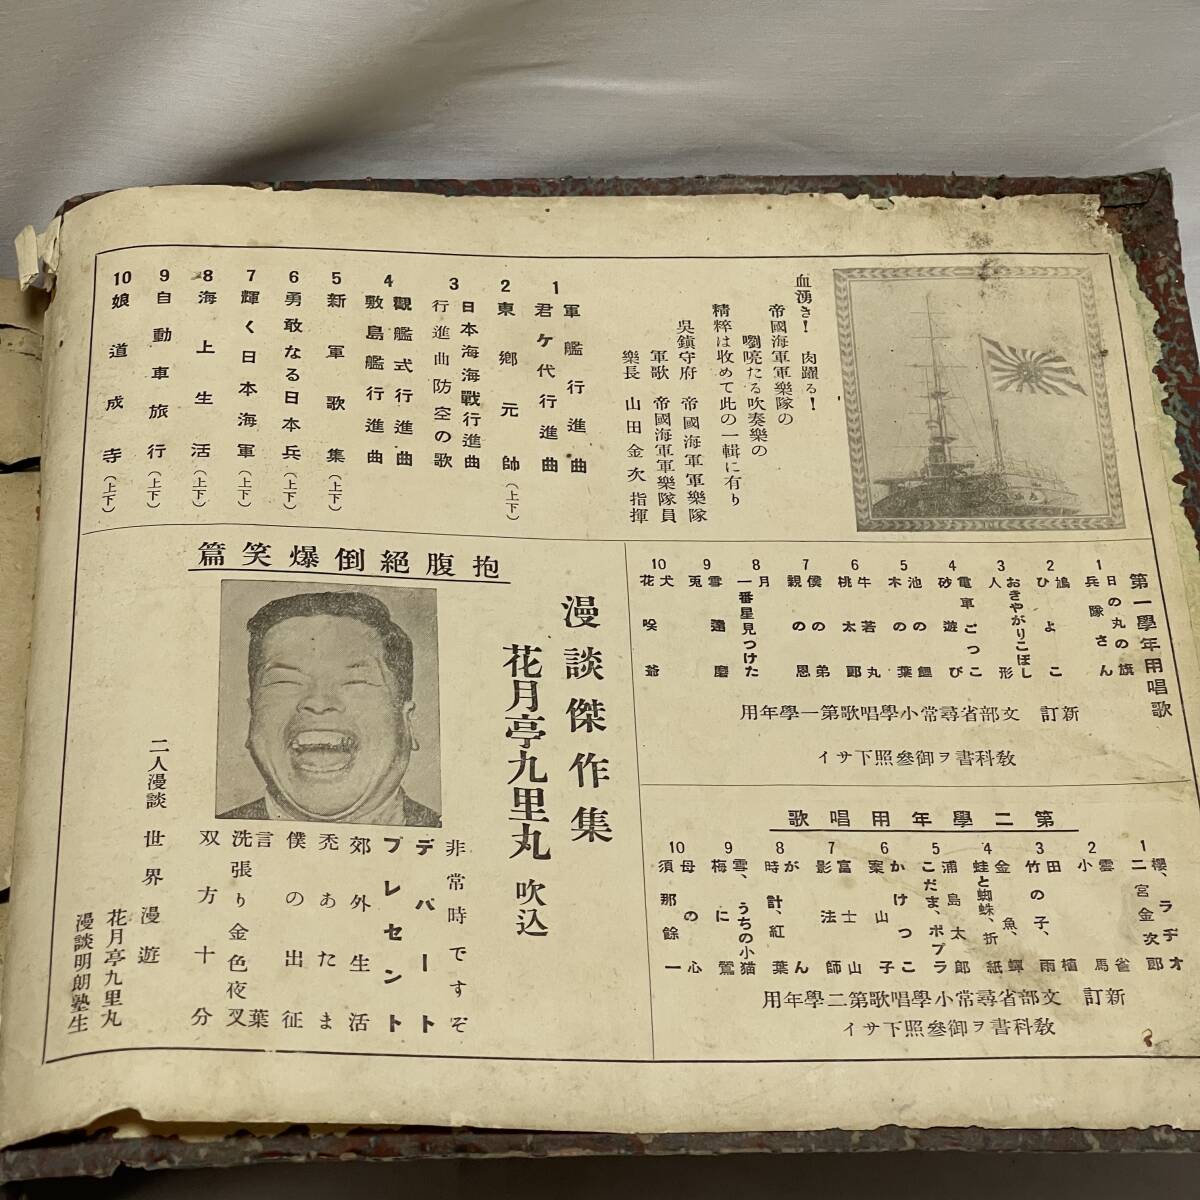 血湧き! 肉躍る!
帝國海軍軍樂隊の
嚠喨たる吹奏樂の
精粹は收めて此の一輯に有り
吳鎮守府 帝國海軍軍樂隊
軍歌 帝國海軍軍樂隊員
樂長 山田金次指揮
1 軍艦行進曲
君ケ代行進曲
2 東郷元帥(上下)
3 日本海海戰行進曲
行進曲防空の歌
4 觀艦式行進曲
敷島艦行進曲
5 新軍歌集(上下)
6 勇敢なる日本兵(上下)
7 輝く日本海軍(上下)
8 海上生活(上下)
9 自動車旅行(上下)
10 娘道成寺(上下)
第一學年用唱歌
1 日の丸の旗
兵隊さん
2 鳩
ひよこ
3 おきやがりこぼし
人形
4 電車ごっこ
砂遊び
5 池の鯉
木の葉
6 牛若丸
桃太郎
7 僕の弟
親の恩
8 月
一番星見つけた
9 雪達磨
兎
10 犬
花咲爺
用年學一第歌唱學小常尋省部文 訂新
イサ下照參御ヲ書科敎
歌唱用年學二第
1 櫻、ラヂオ
二宮金次郎
2 雲雀
小馬
3 田植
竹の子、雨
4 金魚、蟬
蛙と蜘蛛、折紙
5 浦島太郎
こだま、ポプラ
6 かけっこ
案山子
7 富士山
影法師
8 がん
時計、紅葉
9 雪、うちの小猫
梅に鶯
10 母の心
須那餘一
用年學二第歌唱學小常尋省部文 訂新
イサ下照參御ヲ書科敎
篇笑爆倒絕腹抱
漫談傑作集
花月亭九里丸 吹込
非常時ですぞ
デパート
プレセント
郊外生活
禿あたま
僕の出征
言葉
洗張り金色夜叉
双方十分
二人漫談 世界漫遊
花月亭九里丸
漫談明朗塾生